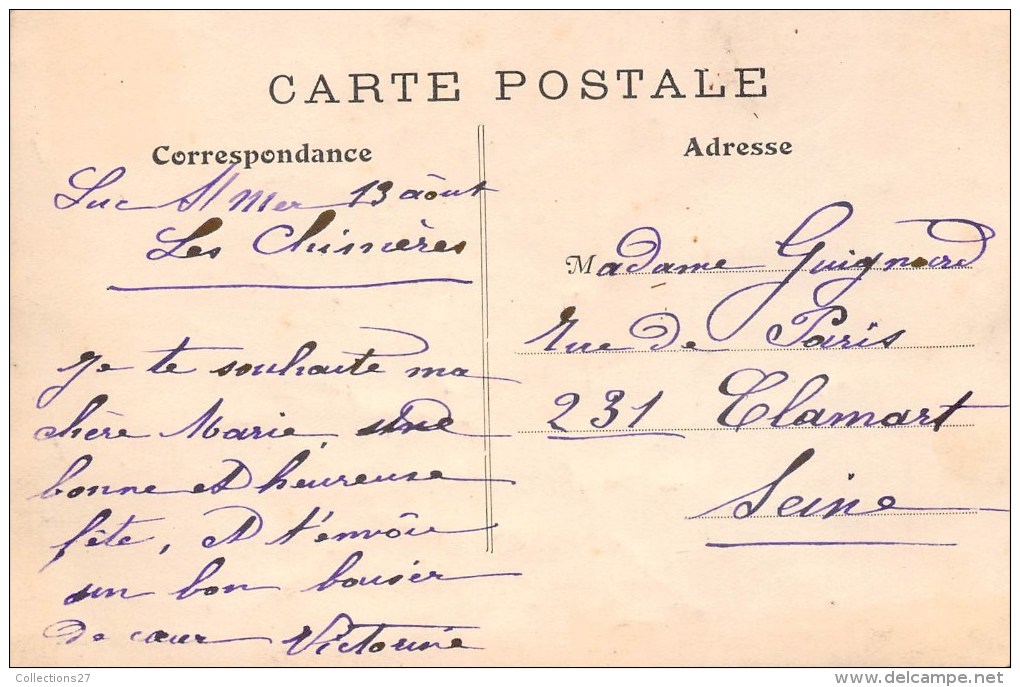 CARTE POSTALE
Correspondance
Luc S/ Mer 13 août
Les
Je te souhaite ma
chère Marie, une
bonne et heureuse
fête, et t'envoie
un bon baiser
de cœur Victorine
Adresse
Madame Guignard
Rue de Paris
231 Clamart
Seine
Collections27
delcampe.net